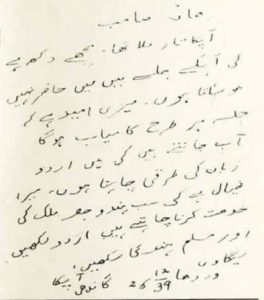 بھائی صاحب
آپکا تار ملا تھا. مجھے دکھ ہے
کی آپکے جلسے میں میں حاضر نہیں
ہو سکتا ہوں. میری امید ہے کہ
جلسہ ہر طرح کامیاب ہوگا
آپ جانتے ہیں کی میں اردو
زبان کی طرقی چاہتا ہوں. میرا
خیال ہے کی سب ہندو جو ملک کی
خدمت کرنا چاہتے ہیں اردو لکھیں
اور مسلم ہندی سیکھیں.
آپکا
سیگاؤں گاندھی
وردھا 26 12 39